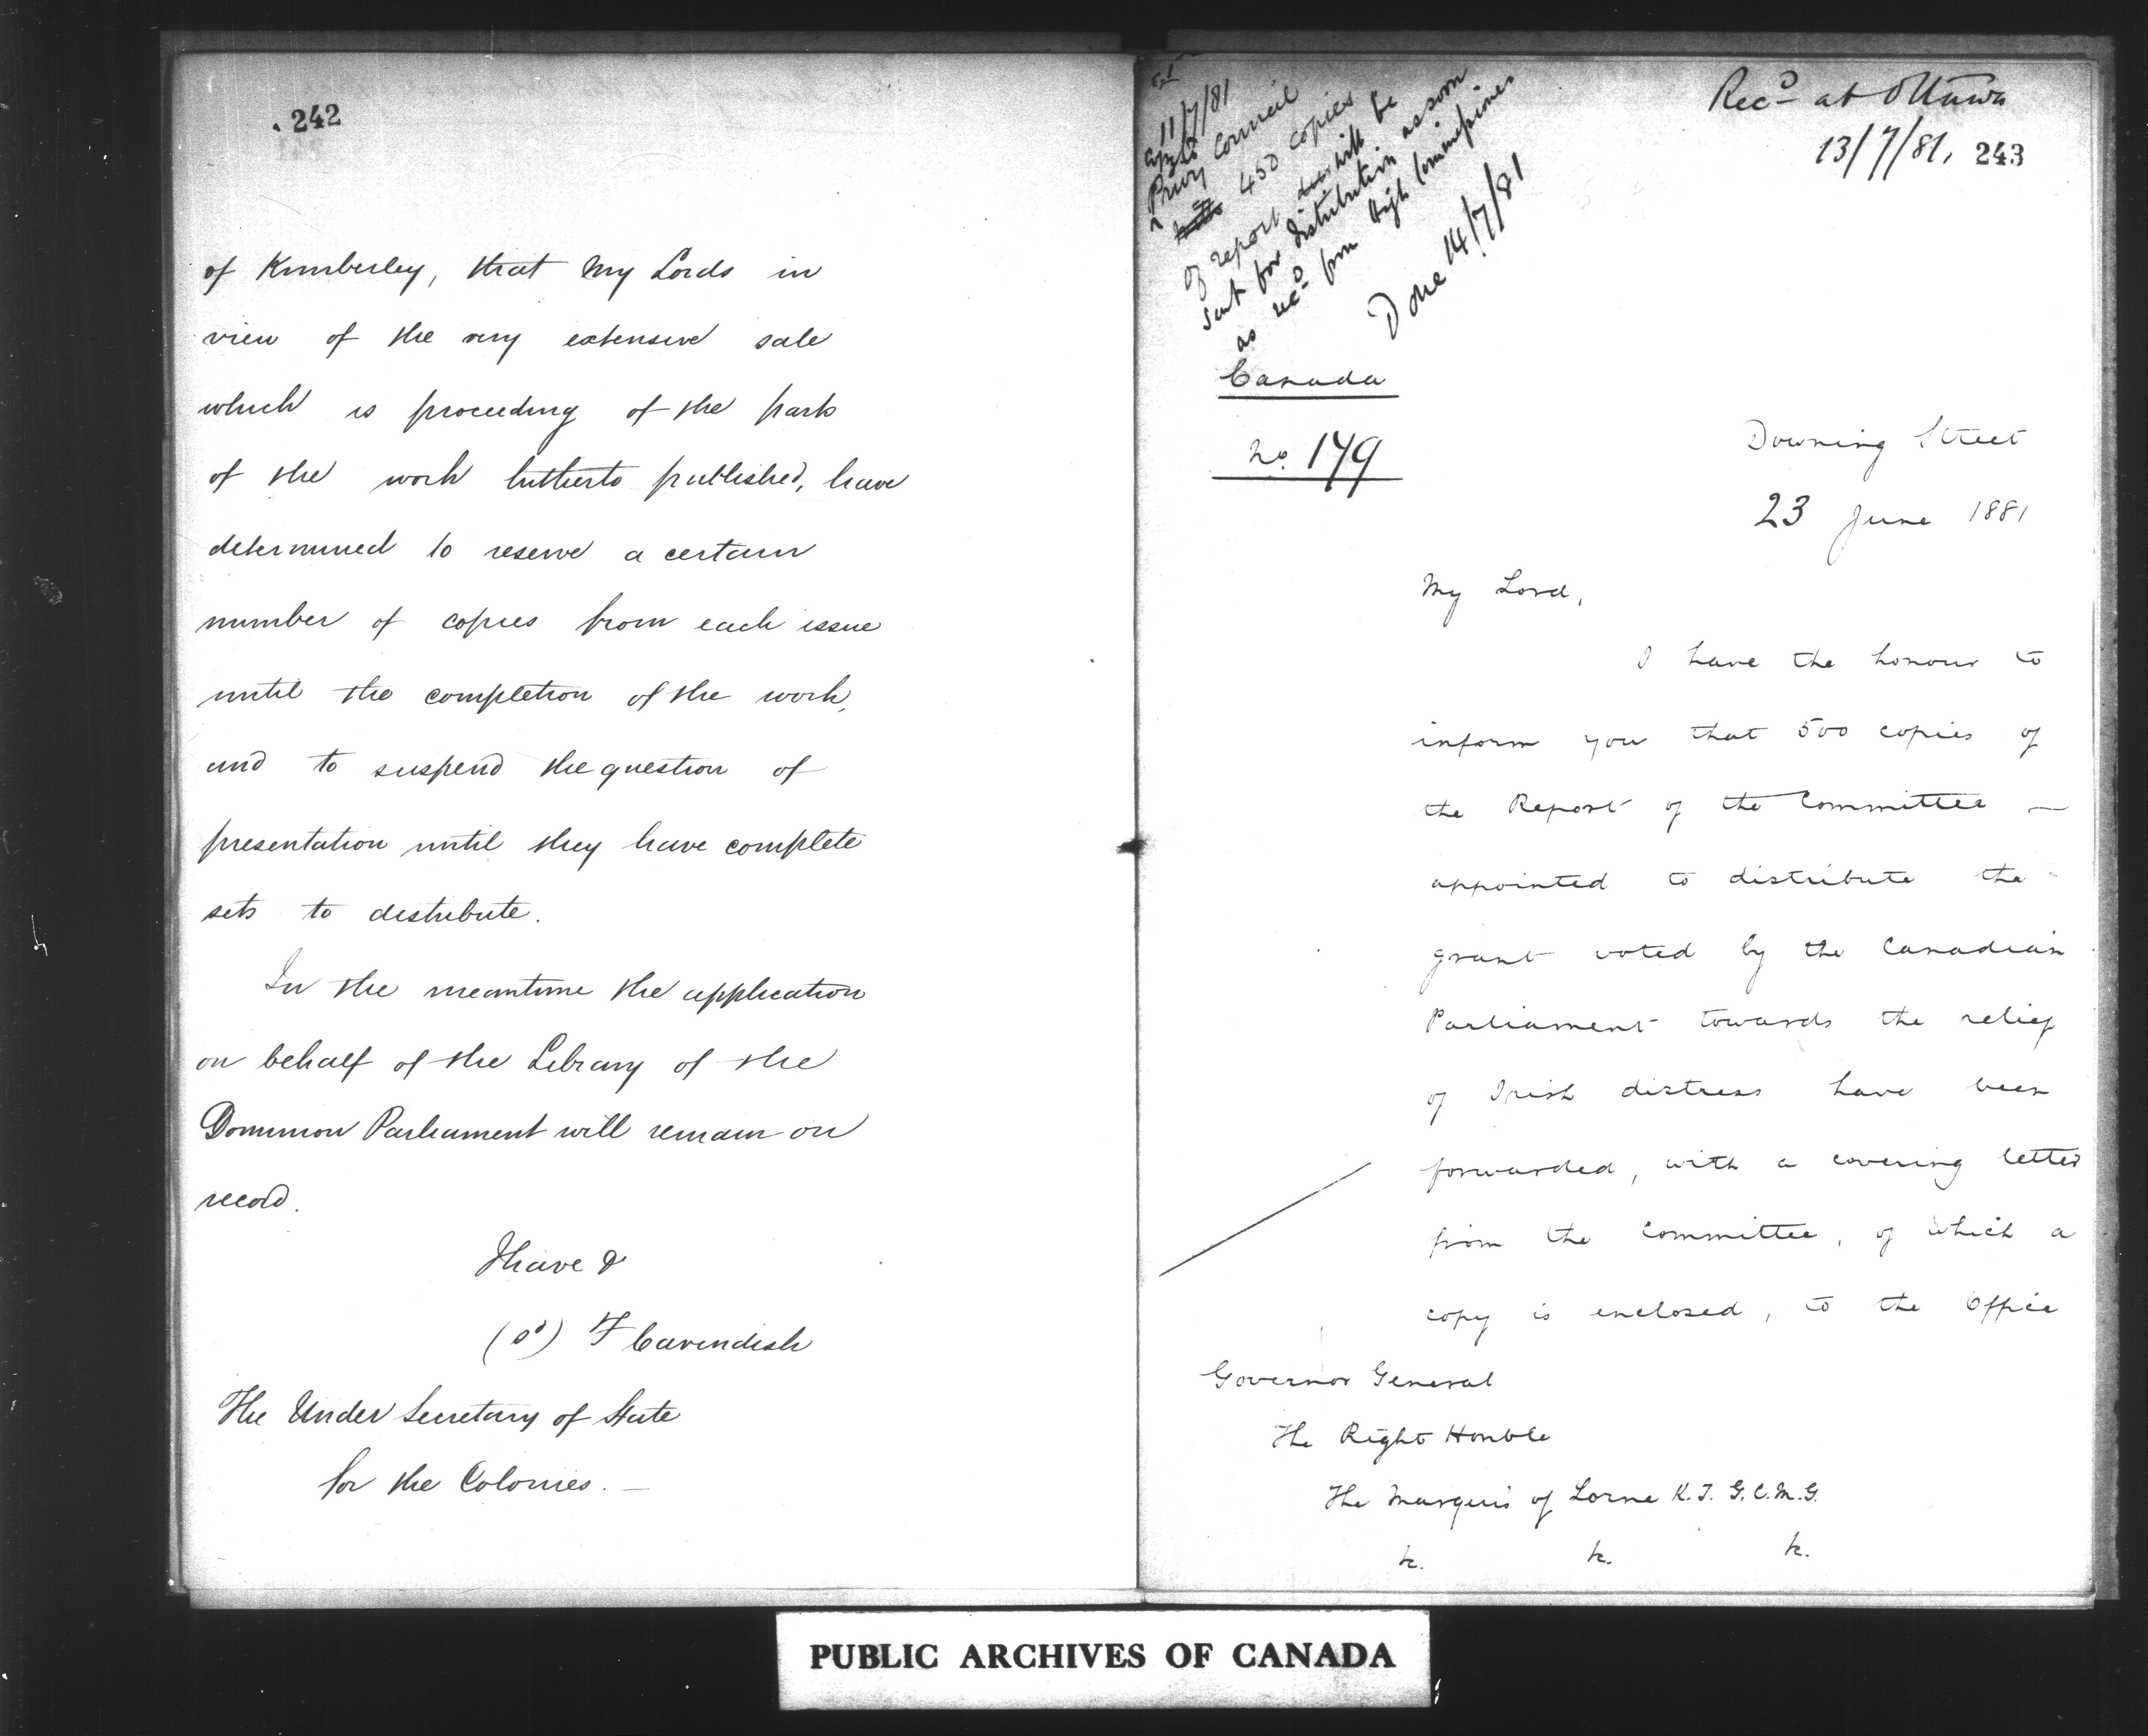 242
of Kimberley, that My Lords in
view of the very extensive sale
which is proceeding of the parts
of the work hitherto published, have
determined to reserve a certain
number of copies from each issue
until the completion of the work,
and to suspend the question of
presentation until they have complete
sets to distribute.
In the meantime the application
on behalf of the Library of the
Dominion Parliament will remain on
record.
I have &
(sd) F Cavendish
The Under Secretary of State
for the Colonies. —
11/7/81
Privy Council
450 copies
of report will be
sent for distribution as soon
as recd from High Commissioner
Done 14/7/81
Recd at Ottawa
13/7/81. 243
Canada
No. 179
Downing Street
23 June 1881
My Lord,
I have the honour to
inform you that 500 copies of
the Report of the Committee —
appointed to distribute the
grant voted by the Canadian
Parliament towards the relief
of Irish distress have been
forwarded, with a covering letter
from the Committee, of which a
copy is enclosed, to the Office
Governor General
The Right Honble
The Marquis of Lorne K.T. G.C.M.G.
&c. &c. &c.
PUBLIC ARCHIVES OF CANADA